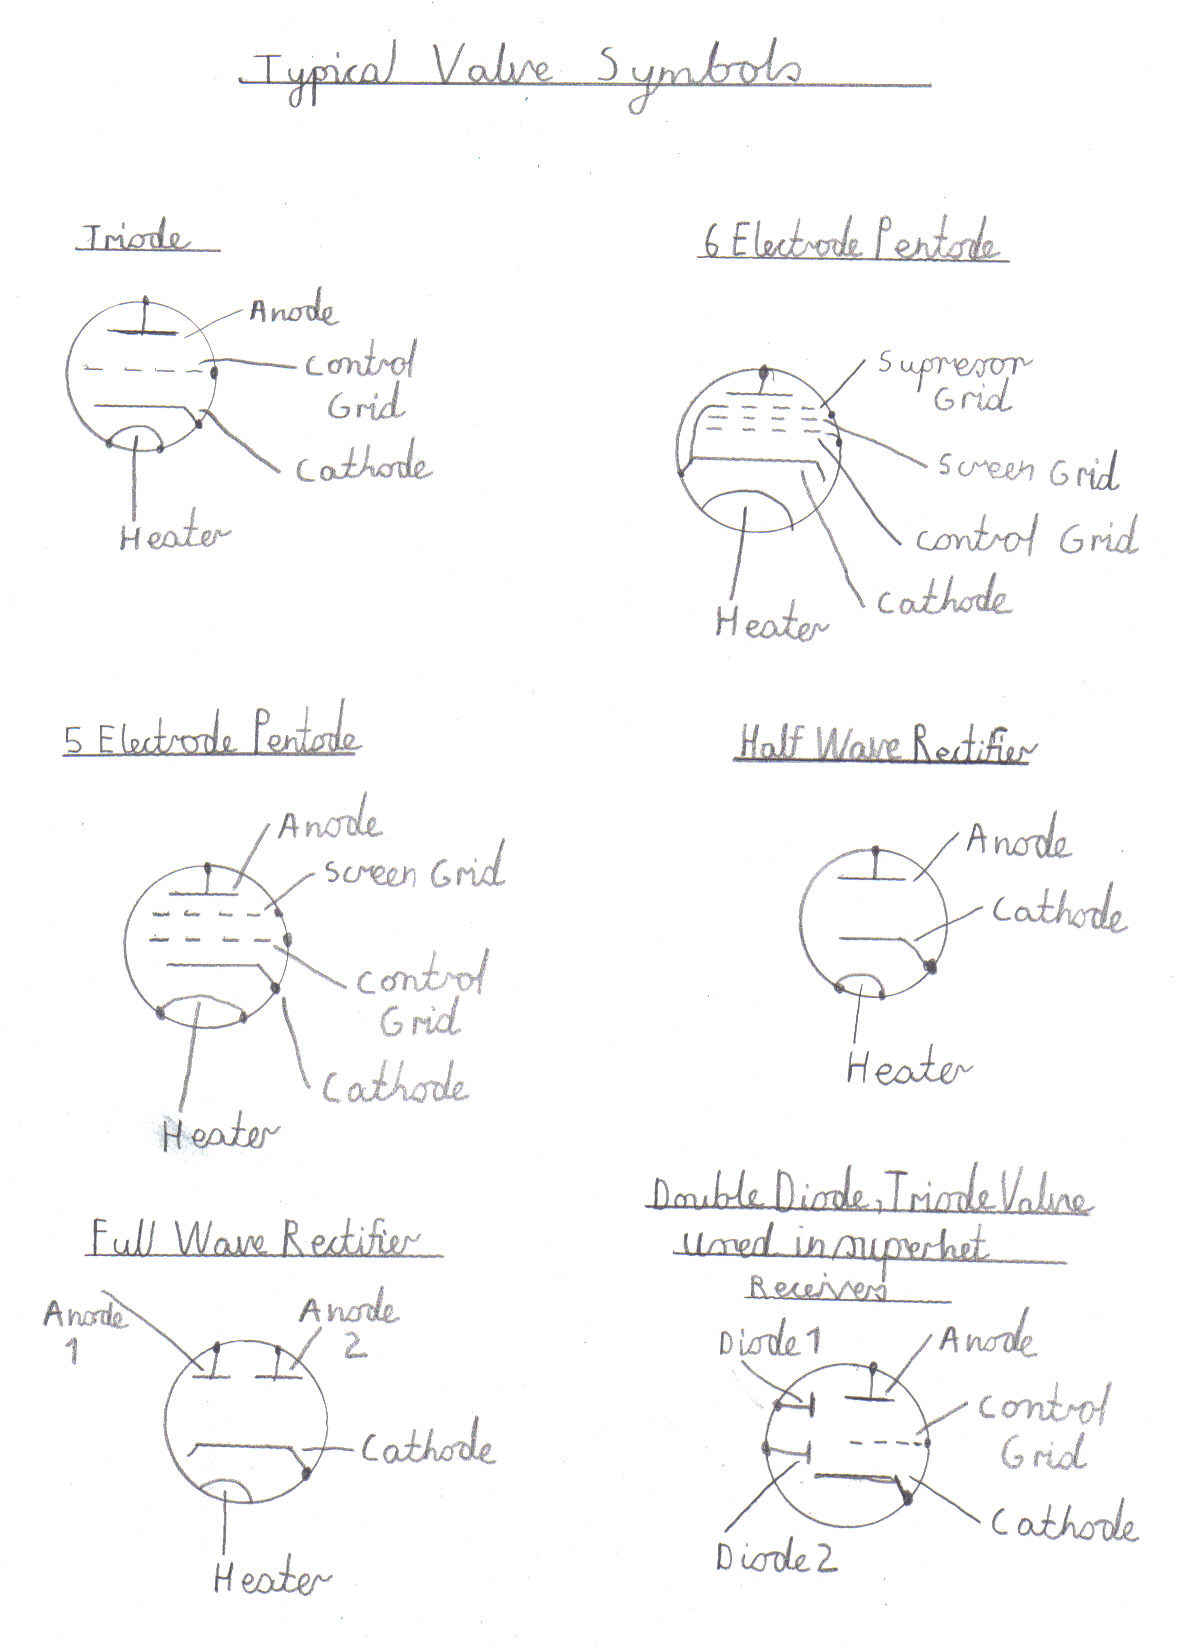 Typical Valve Symbols
Triode
Anode
Control
Grid
Cathode
Heater
6 Electrode Pentode
Supresor
Grid
Screen Grid
Control Grid
Cathode
Heater
5 Electrode Pentode
Anode
Screen Grid
Control
Grid
Cathode
Heater
Half Wave Rectifier
Anode
Cathode
Heater
Full Wave Rectifier
Anode
1
Anode
2
Cathode
Heater
Double Diode, Triode Valve
used in superhet
Receivers
Diode 1
Anode
Control
Grid
Cathode
Diode 2